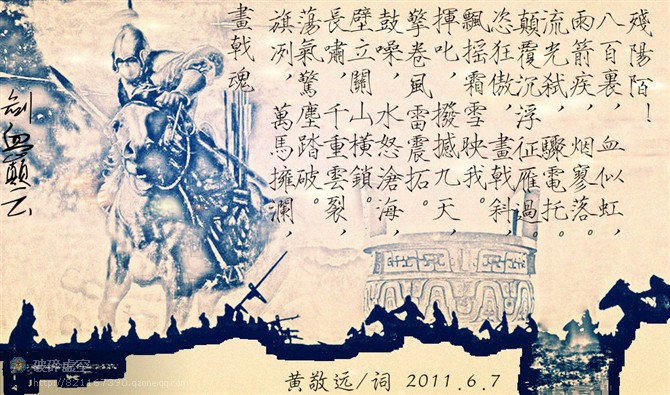 殘陽陌！
八百裏，血似虹，
雨箭疾，烟寥落。
流光弑，驟電托。
顛覆沉浮征雁過。
恣狂傲，畫戟斜。
飄摇霜雪映我。
揮叱，撥撼九天，
擎卷風雷震拓。
鼓噪，水怒滄海，
壁立關山橫鎖。
長嘯，千重雲裂，
蕩氣驚塵踏破。
旗冽，萬馬擁瀾，
畫戟魂
劍血巔云
黄敬远/词 2011.6.7
破碎虚空
http://821167390.qzone.qq.com